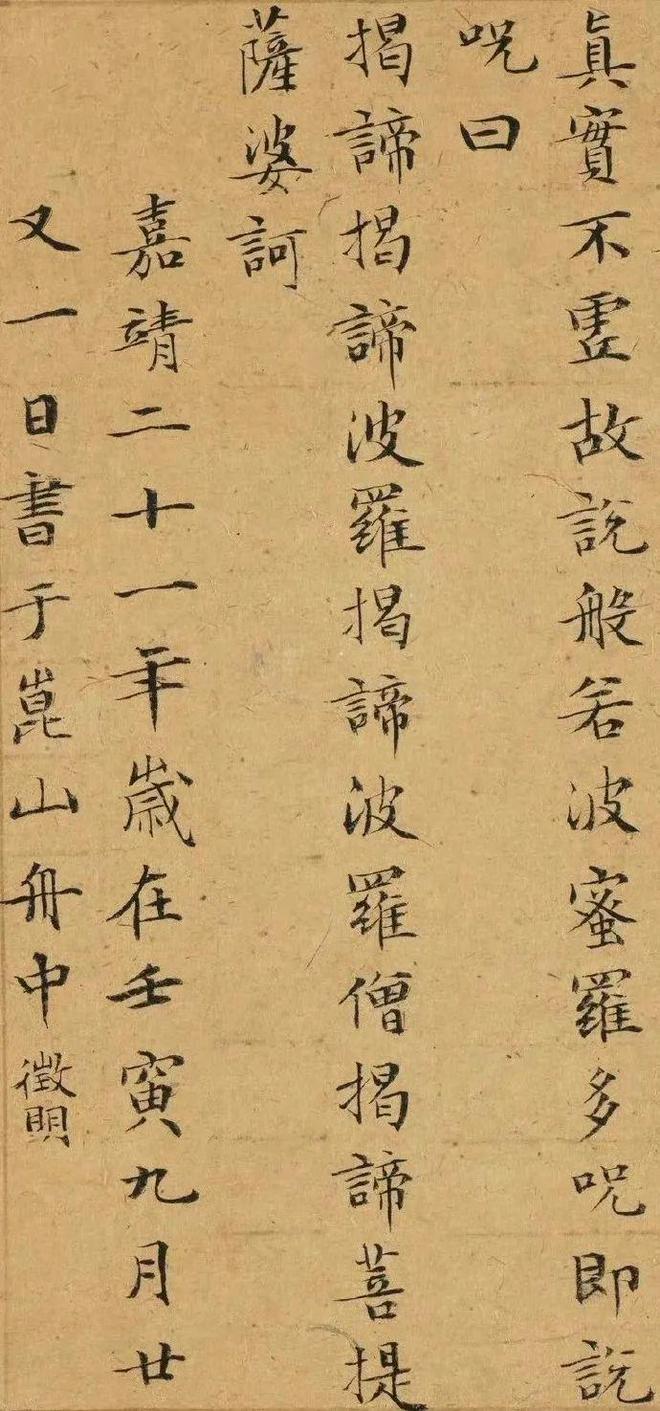 真實不虛故說般若波蜜羅多呪即說
呪曰
揭諦揭諦波羅揭諦波羅僧揭諦菩提
薩婆訶
嘉靖二十一年歲在壬寅九月廿
又一日書于崑山舟中徵明